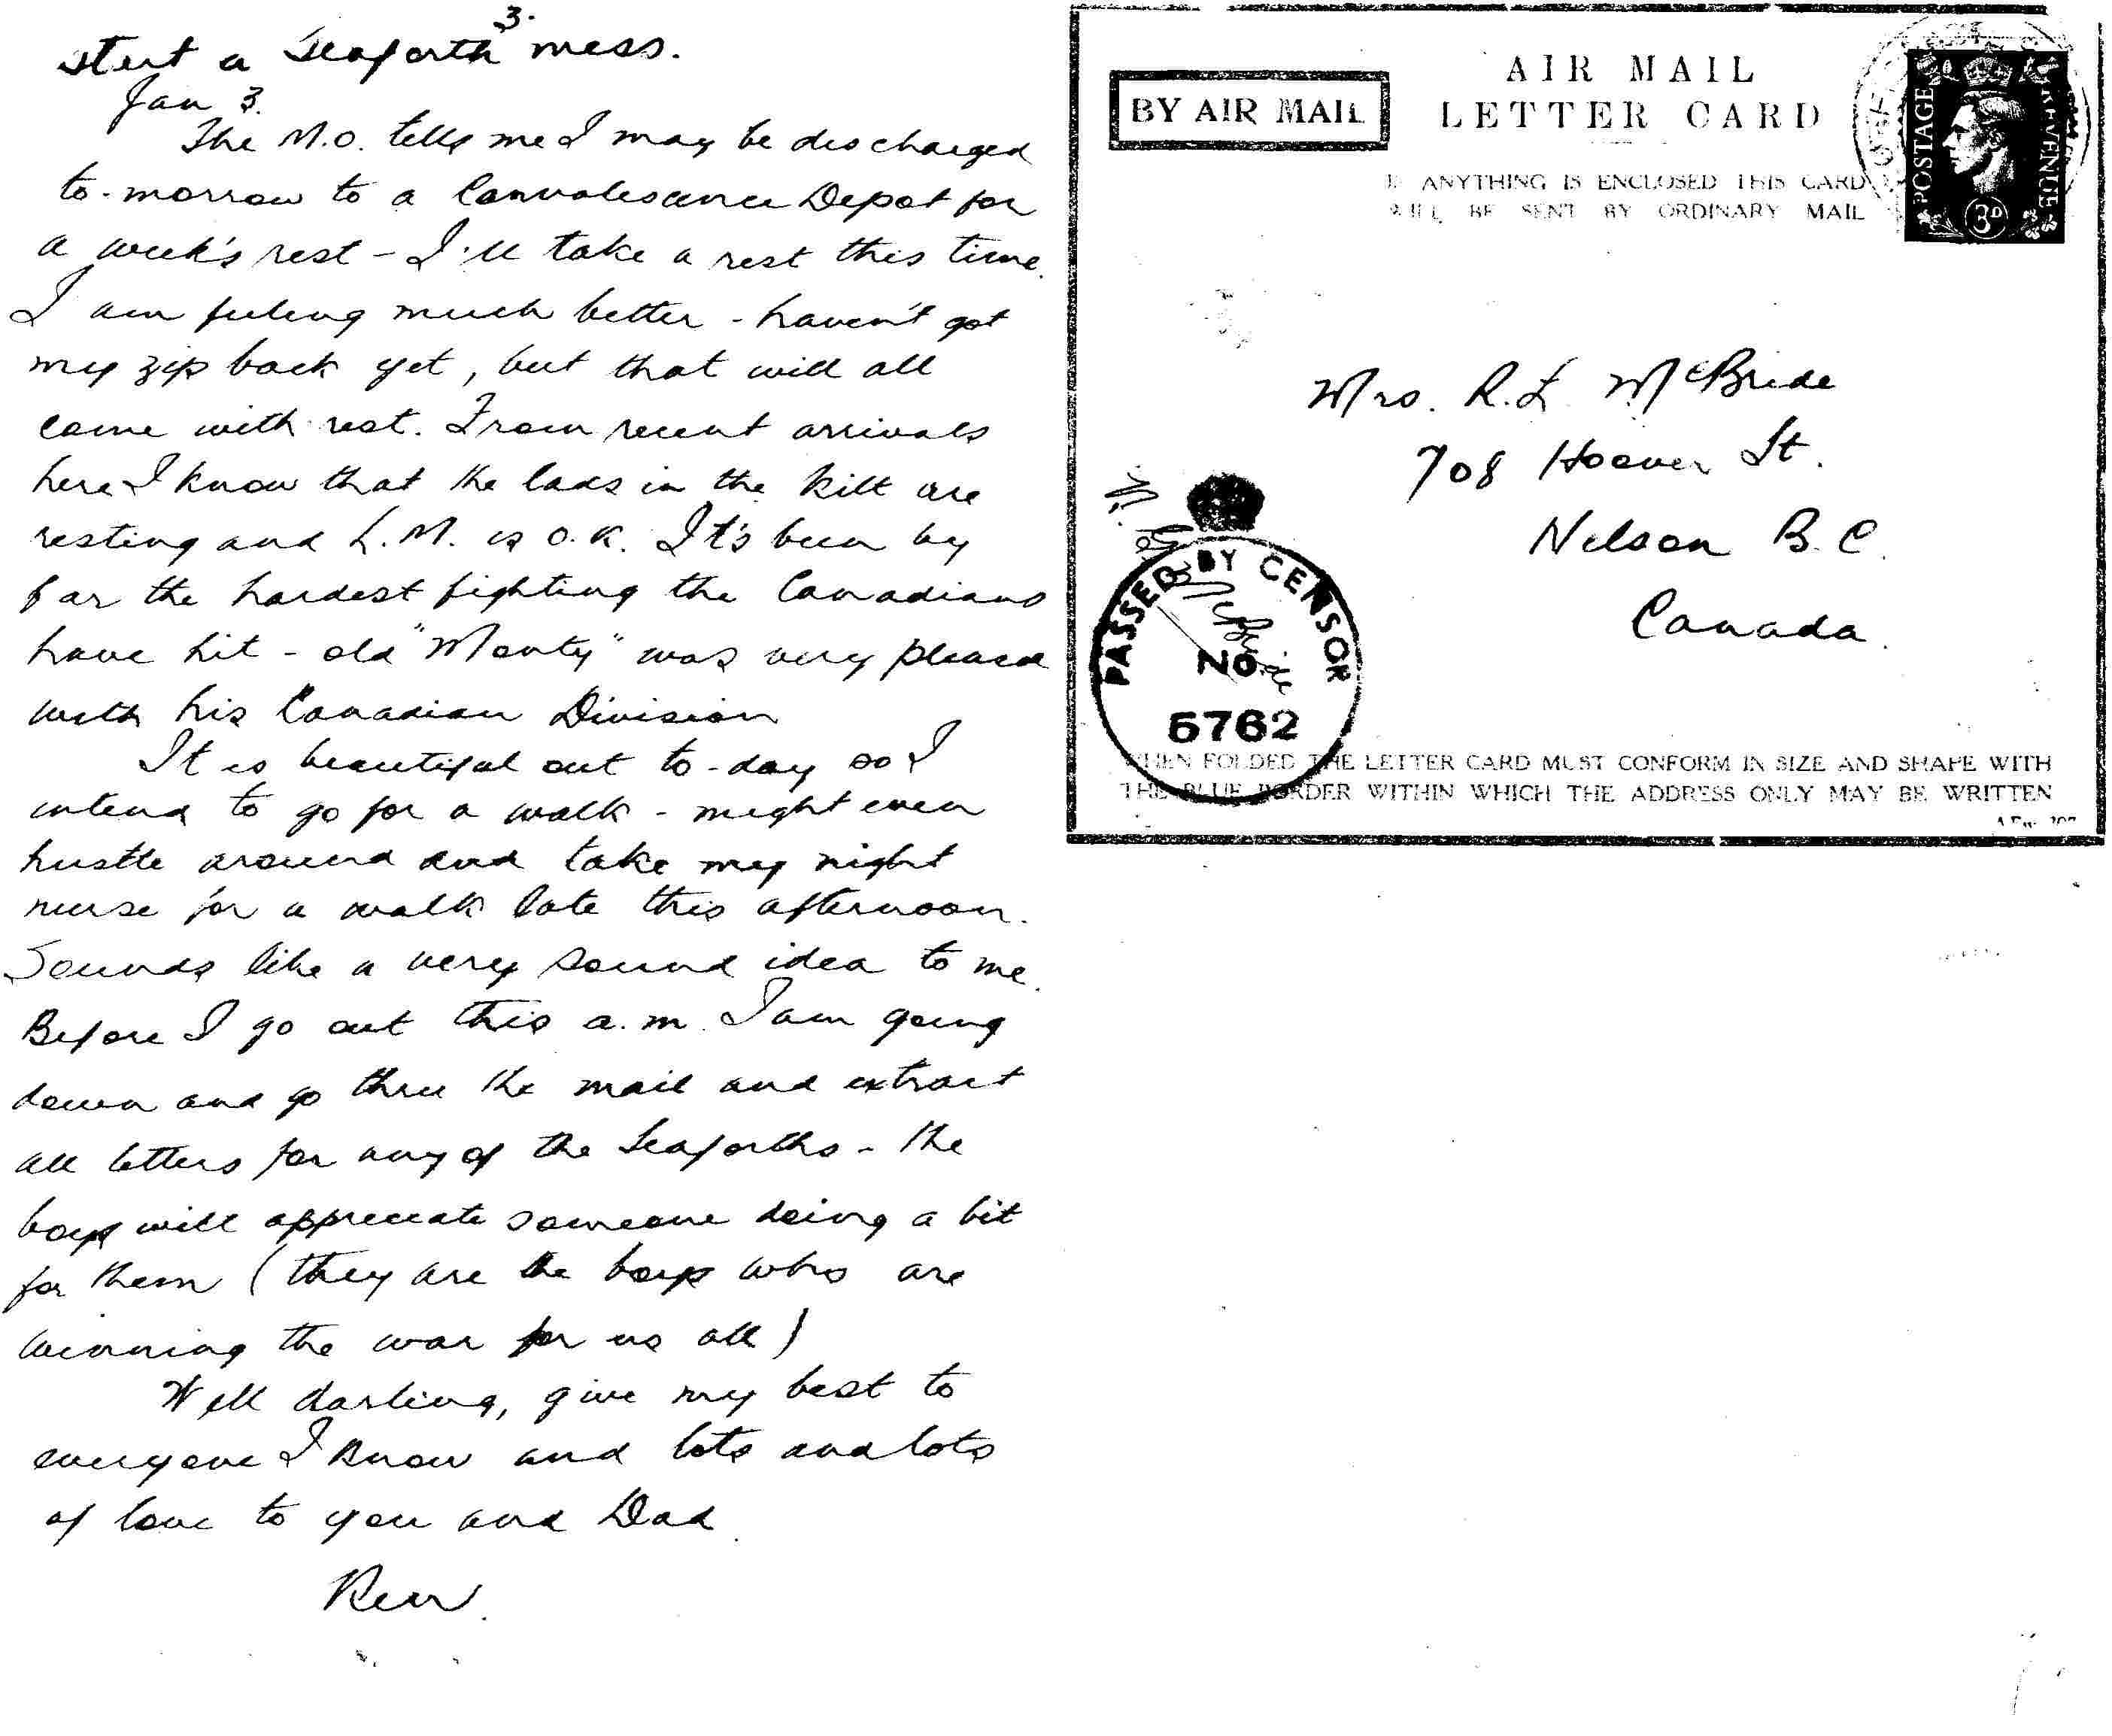 3.
start a Seaforth mess.
Jan 3.
The M.O. tells me I may be discharged
to-morrow to a Convalescence Depot for
a week's rest - I'll take a rest this time.
I am feeling much better - haven't got
my zip back yet, but that will all
come with rest. From recent arrivals
here I know that the lads in the kilt are
resting and L.M. is O.K. It's been by
far the hardest fighting the Canadians
have hit - old "Monty" was very pleased
with his Canadian Division
It is beautiful out to-day so I
intend to go for a walk - might even
hustle around and take my night
nurse for a walk late this afternoon.
Sounds like a very sound idea to me.
Before I go out this a.m. I am going
down and go thru the mail and extract
all letters for any of the Seaforths - the
boys will appreciate someone doing a bit
for them (they are the boys who are
winning the war for us all)
Well darling, give my best to
everyone I know and lots and lots
of love to you and Dad.
Ken.
BY AIR MAIL
AIR MAIL
LETTER CARD
IF ANYTHING IS ENCLOSED THIS CARD
WILL BE SENT BY ORDINARY MAIL
POSTAGE REVENUE
3D
Mrs. R.L. McBride
708 Hoover St.
Nelson B.C.
Canada.
McBride
PASSED BY CENSOR
No
5762
WHEN FOLDED THE LETTER CARD MUST CONFORM IN SIZE AND SHAPE WITH
THE BLUE BORDER WITHIN WHICH THE ADDRESS ONLY MAY BE WRITTEN